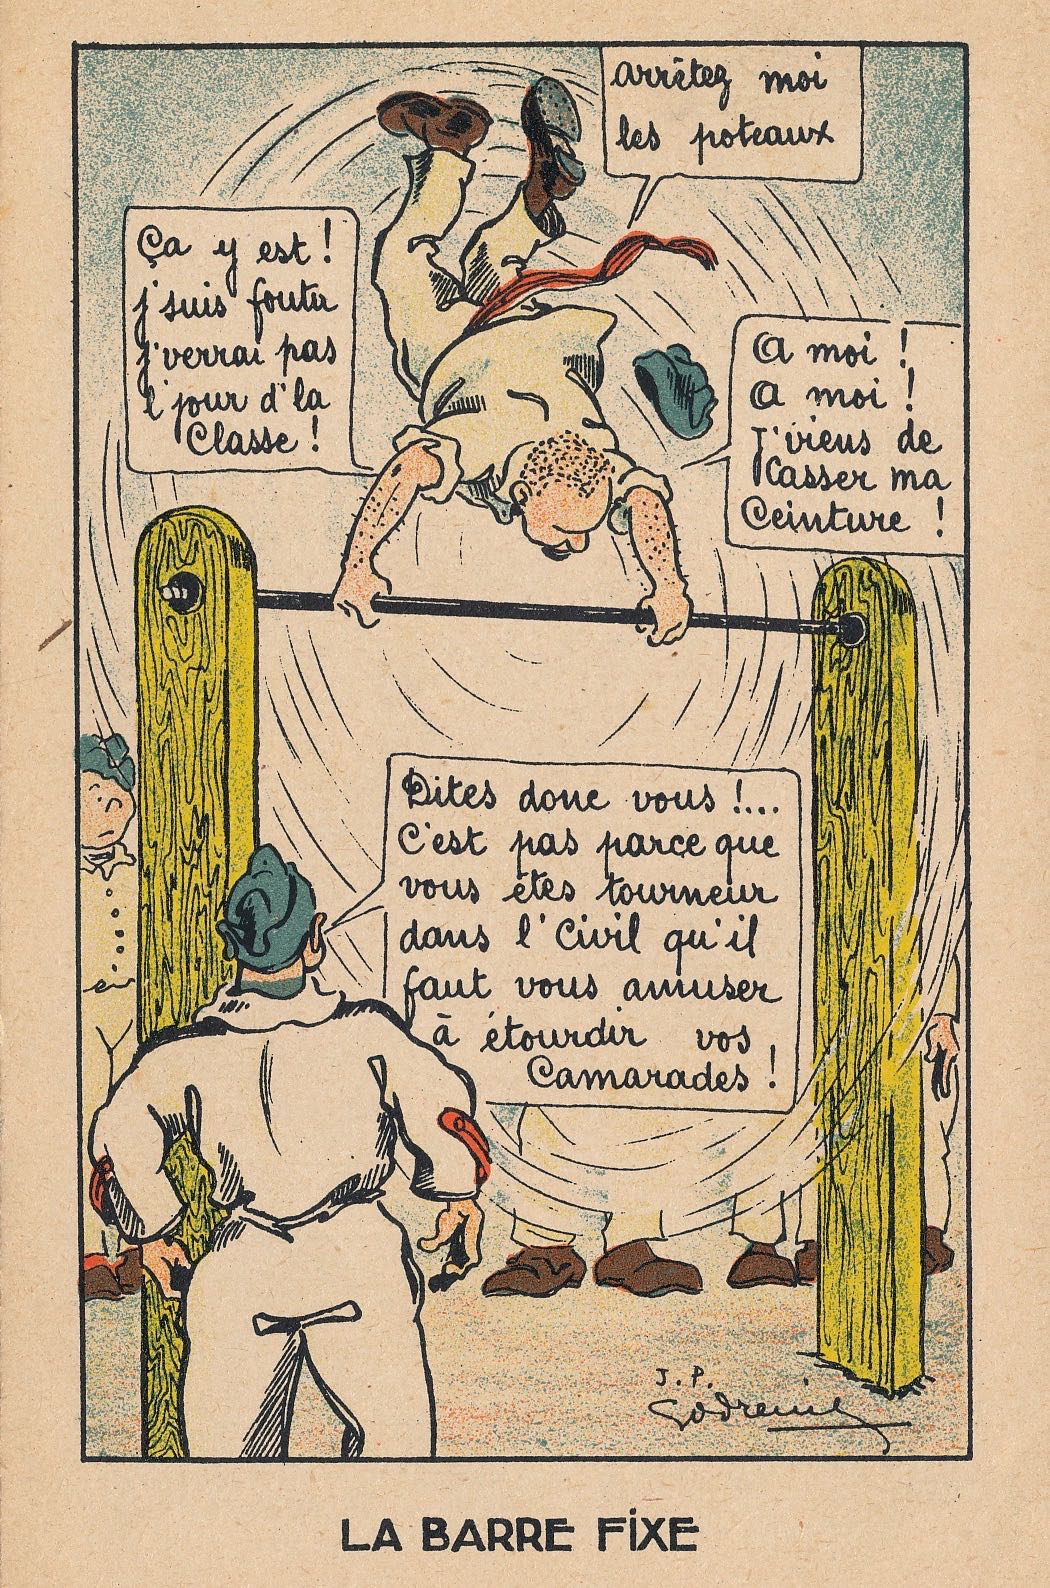 arrêtez moi
les poteaux
Ça y est !
j'suis foutu
j'verrai pas
l'jour d'la
Classe !
A moi !
A moi !
J'viens de
Casser ma
Ceinture !
Dites donc vous !...
C'est pas parce que
vous êtes tourneur
dans l'Civil qu'il
faut vous amuser
à étourdir vos
Camarades !
J. P.
Godreuil
LA BARRE FIXE